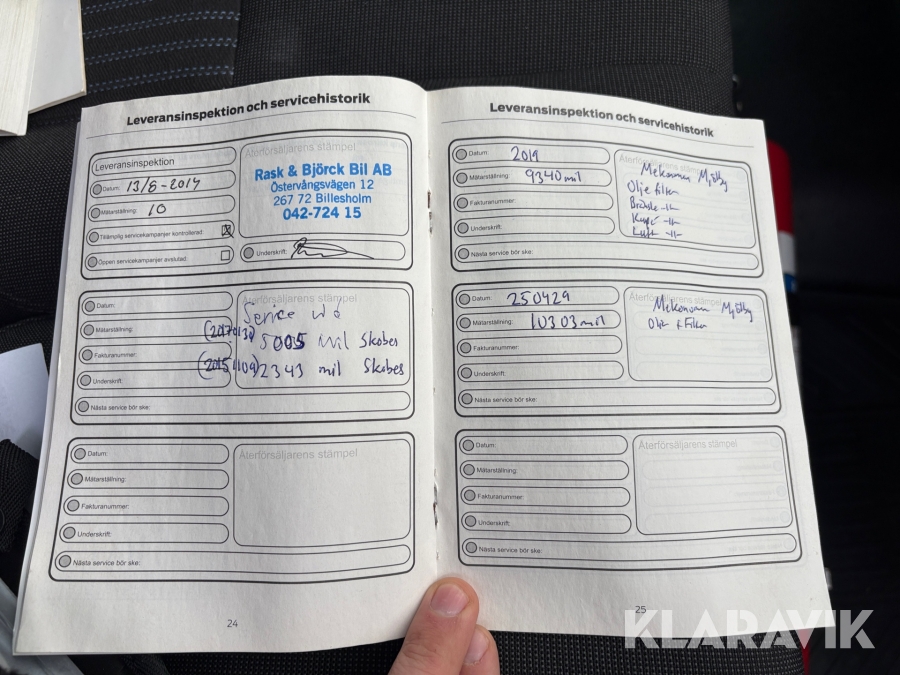 Leveransinspektion och servicehistorik
Leveransinspektion
Datum: 13/8-2014
Mätarställning: 10
Tillämplig servicekampanjer kontrollerad:
Öppen servicekampanjer avslutad:
Återförsäljarens stämpel
Rask & Björck Bil AB
Östervångsvägen 12
267 72 Billesholm
042-724 15
Underskrift:
Datum:
Mätarställning:
Fakturanummer:
Underskrift:
Nästa service bör ske:
Återförsäljarens stämpel
Service
5005 mil Skobes
(20151109) 2343 mil Skobes
Datum:
Mätarställning:
Fakturanummer:
Underskrift:
Nästa service bör ske:
Återförsäljarens stämpel
24
Leveransinspektion och servicehistorik
Datum: 2019
Mätarställning: 9340 mil
Fakturanummer:
Underskrift:
Nästa service bör ske:
Återförsäljarens stämpel
Mekonomen
Olje filter
Bränsle -11-
Kupé -11-
Luft -11-
Datum: 250429
Mätarställning: 10303 mil
Fakturanummer:
Underskrift:
Nästa service bör ske:
Återförsäljarens stämpel
Mekonomen
Olja + Filter
Datum:
Mätarställning:
Fakturanummer:
Underskrift:
Nästa service bör ske:
Återförsäljarens stämpel
25
KLARAVIK